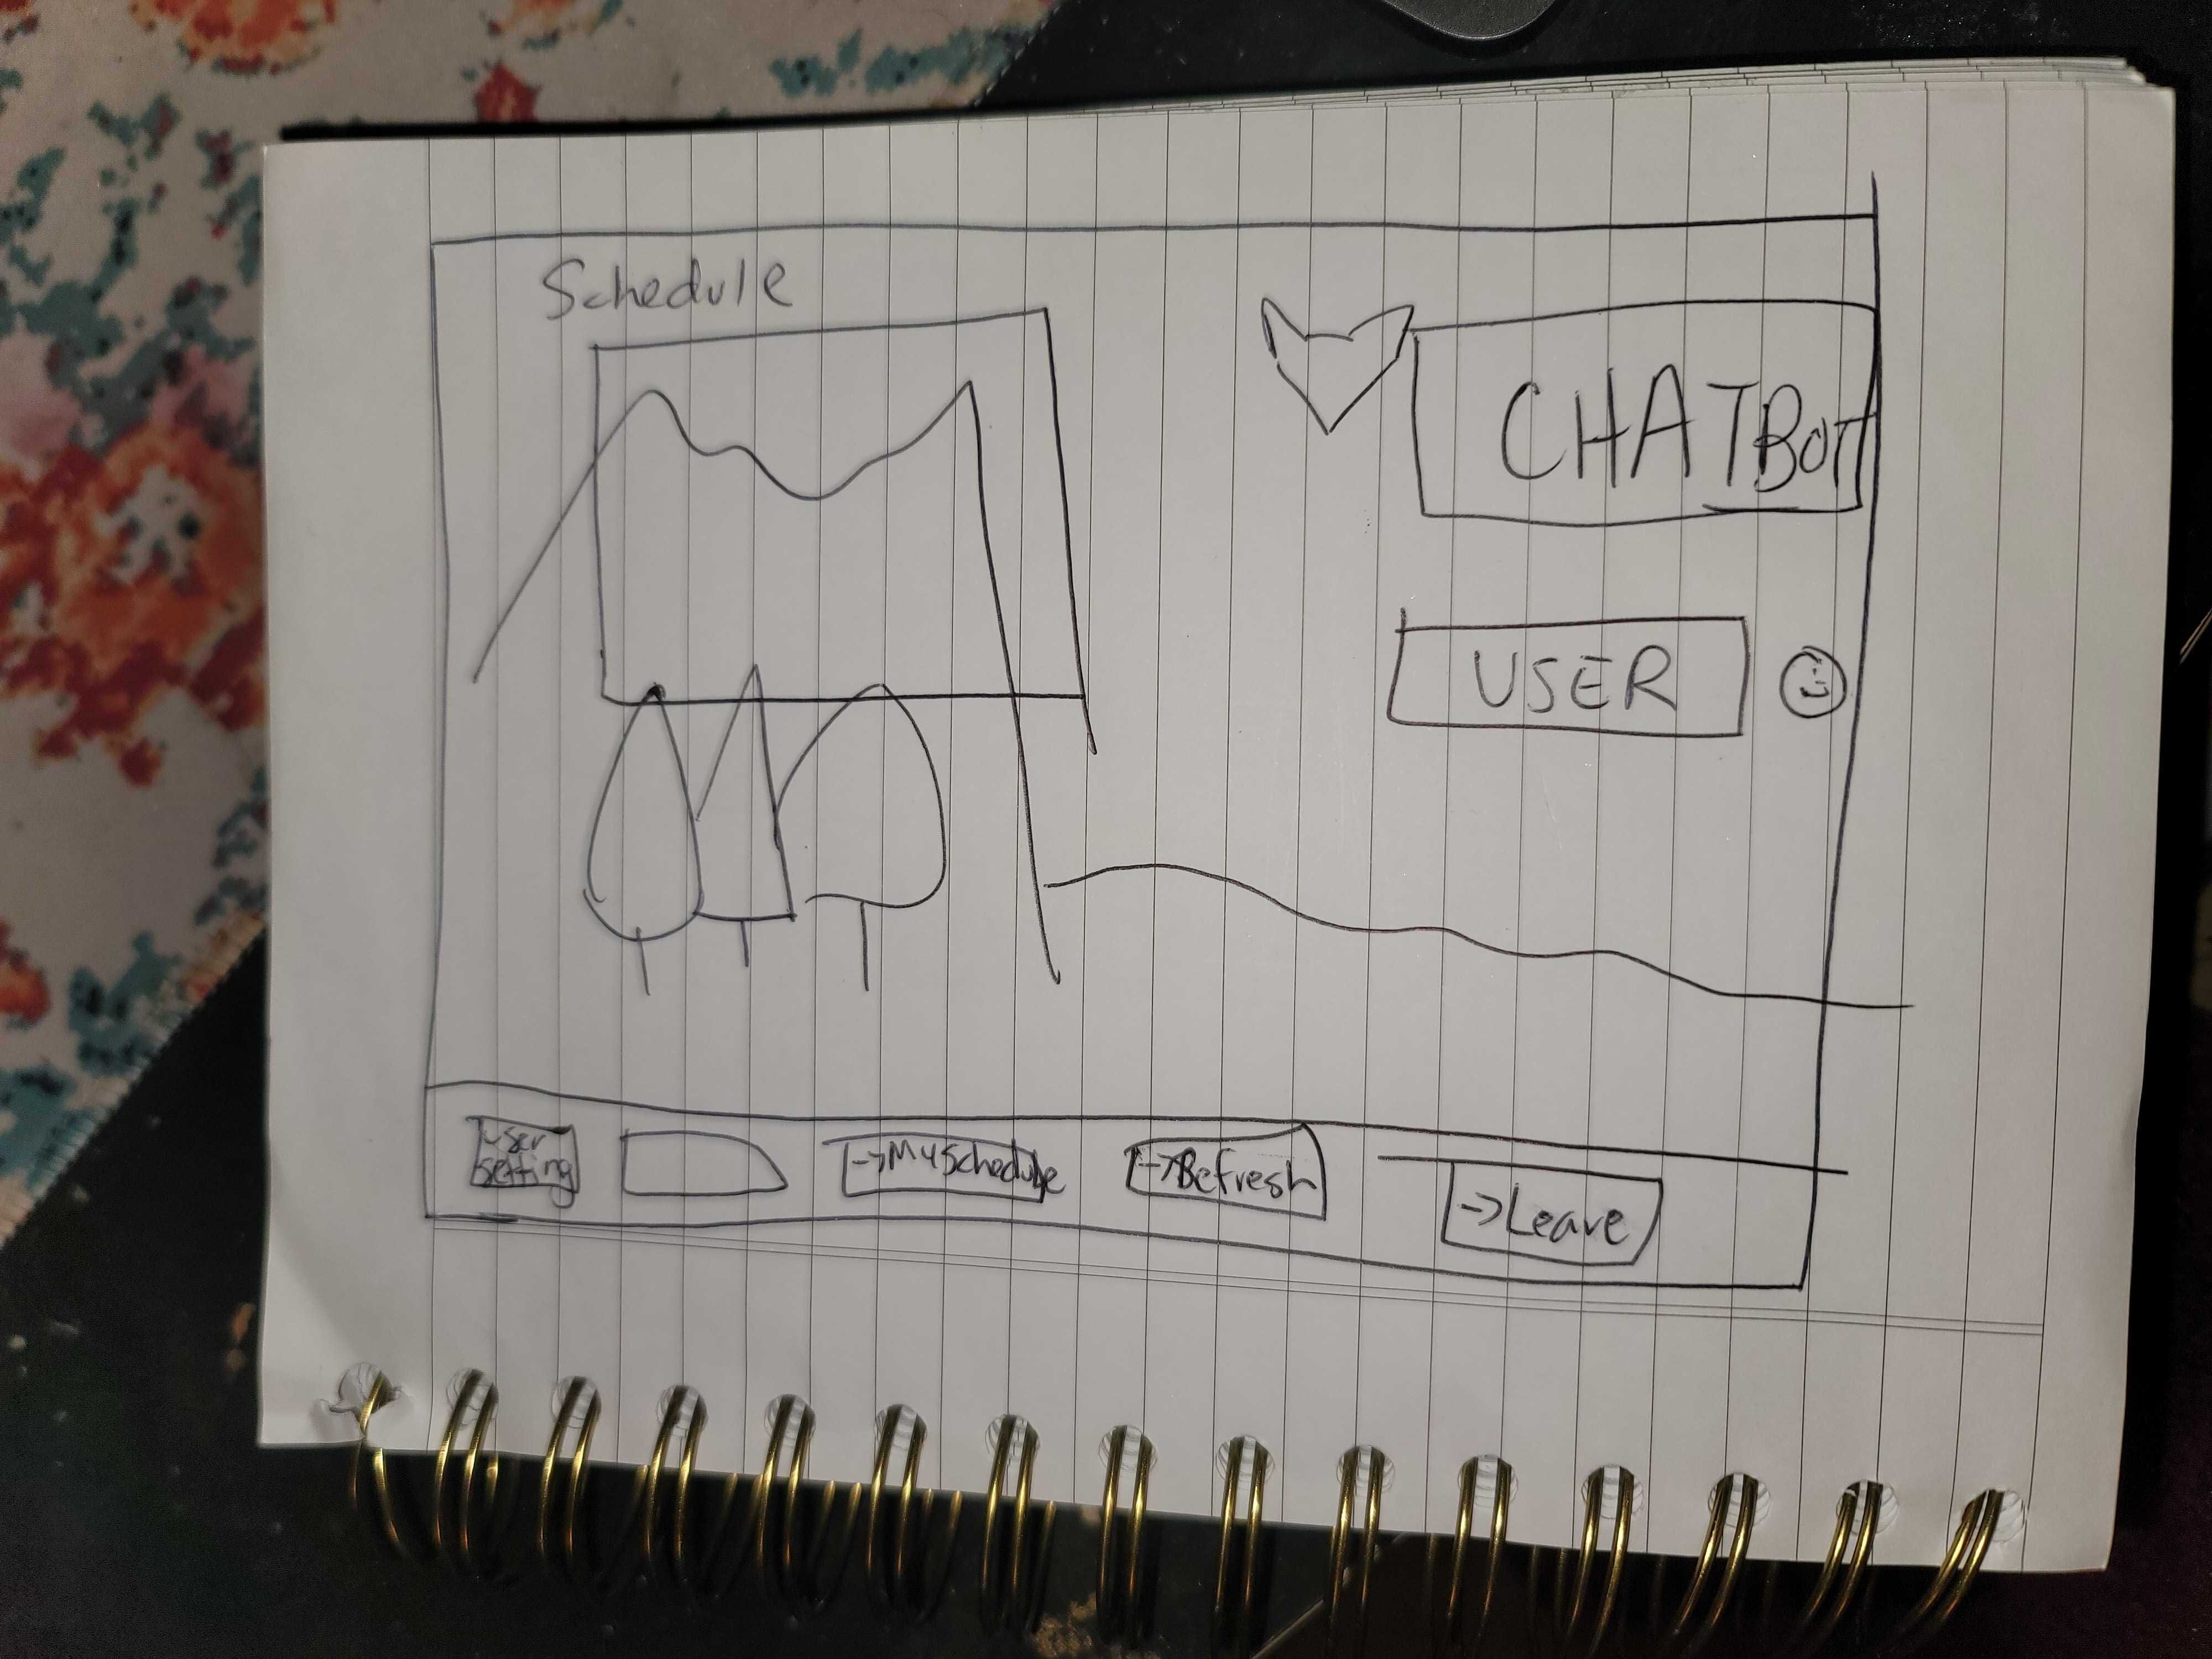 Schedule
CHATBOT
USER
User
setting
->MySchedule
->Refresh
->Leave